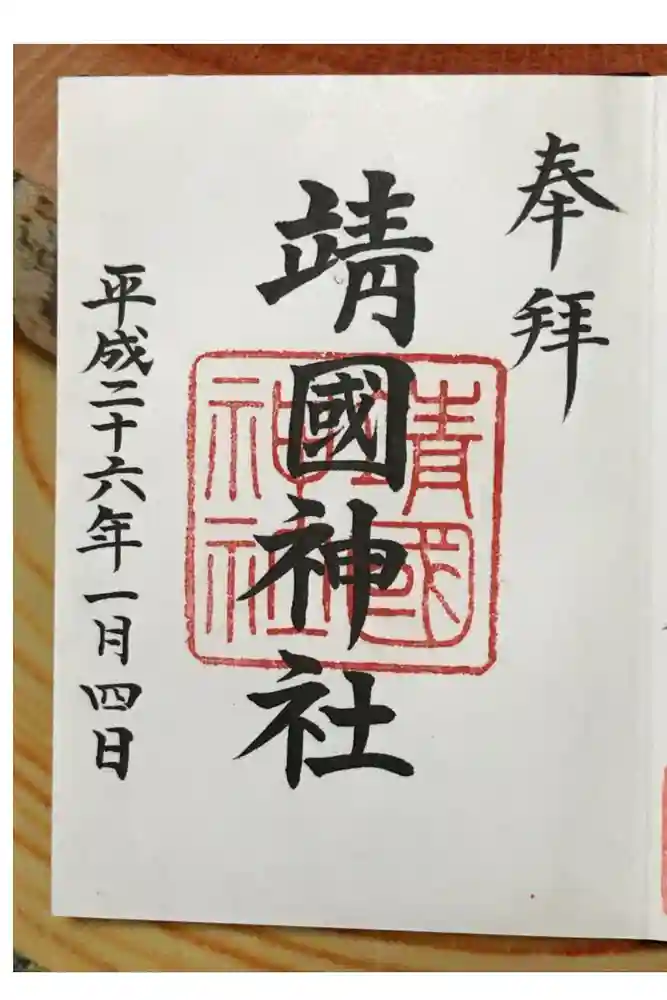 奉拝
靖國神社
靖國神社
平成二十六年一月四日